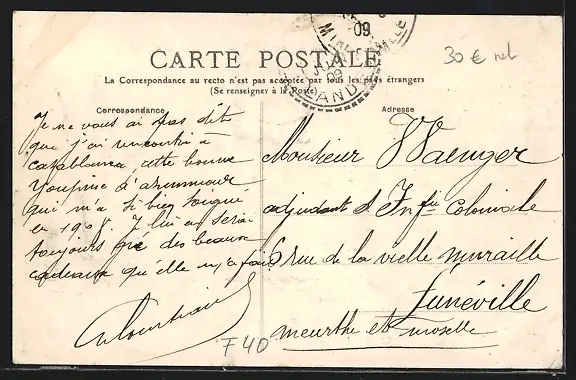 09
30 € net
CARTE POSTALE
La Correspondance au recto n'est pas acceptée par tous les pays étrangers
(Se renseigner à la Poste)
09
LANDES
Correspondance
Je ne vous ai pas dit
que j'ai rencontré à
Casablanca cette bonne
Youpine d'azemmour
qui m'a si bien soigné
en 1908. Je lui en serai
toujours gré des beaux
cadeaux qu'elle m'a fait
Adresse
Monsieur Waenger
adjudant d'Infie Coloniale
6 rue de la vieille muraille
Lunéville
meurthe et moselle
F40